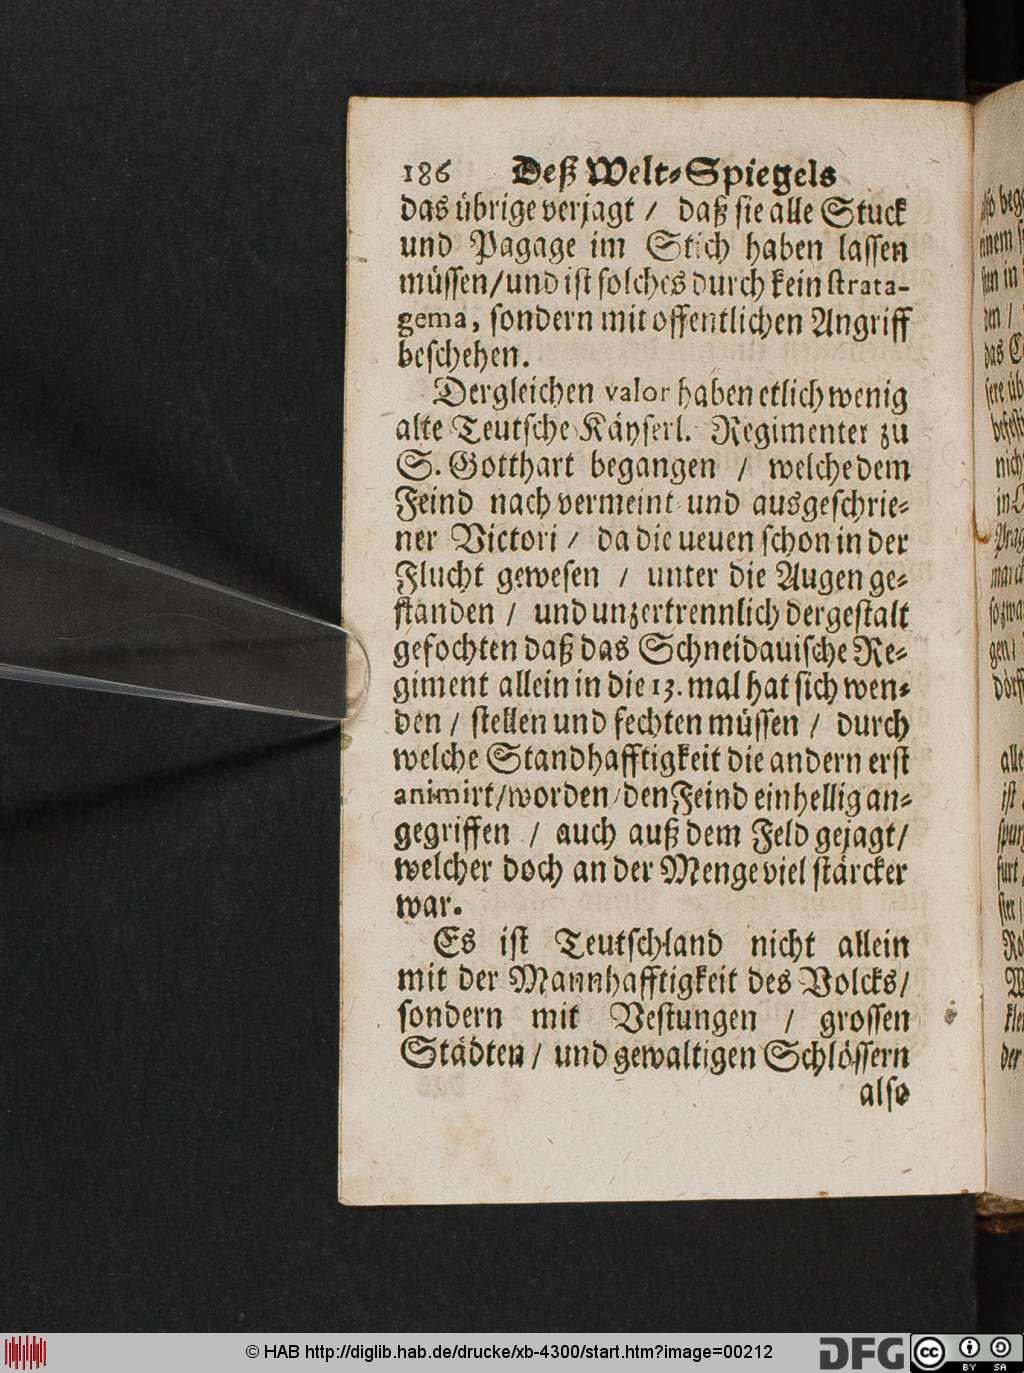 186 Deß Welt-Spiegels
das übrige verjagt / daß sie alle Stuck
und Pagage im Stich haben lassen
müssen/und ist solches durch kein strata-
gema, sondern mit offentlichen Angriff
beschehen.
Dergleichen valor haben etlich wenig
alte Teutsche Käyserl. Regimenter zu
S. Gotthart begangen / welche dem
Feind nach vermeint und ausgeschrie-
ner Victori / da die ueuen schon in der
Flucht gewesen / unter die Augen ge-
standen / und unzertrennlich dergestalt
gefochten daß das Schneidauische Re-
giment allein in die 13. mal hat sich wen-
den / stellen und fechten müssen / durch
welche Standhafftigkeit die andern erst
animirt/worden/den Feind einhellig an-
gegriffen / auch auß dem Feld gejagt/
welcher doch an der Menge viel stärcker
war.
Es ist Teutschland nicht allein
mit der Mannhafftigkeit des Volcks/
sondern mit Vestungen / grossen
Städten / und gewaltigen Schlössern
also
© HAB http://diglib.hab.de/drucke/xb-4300/start.htm?image=00212
DFG
cc BY SA